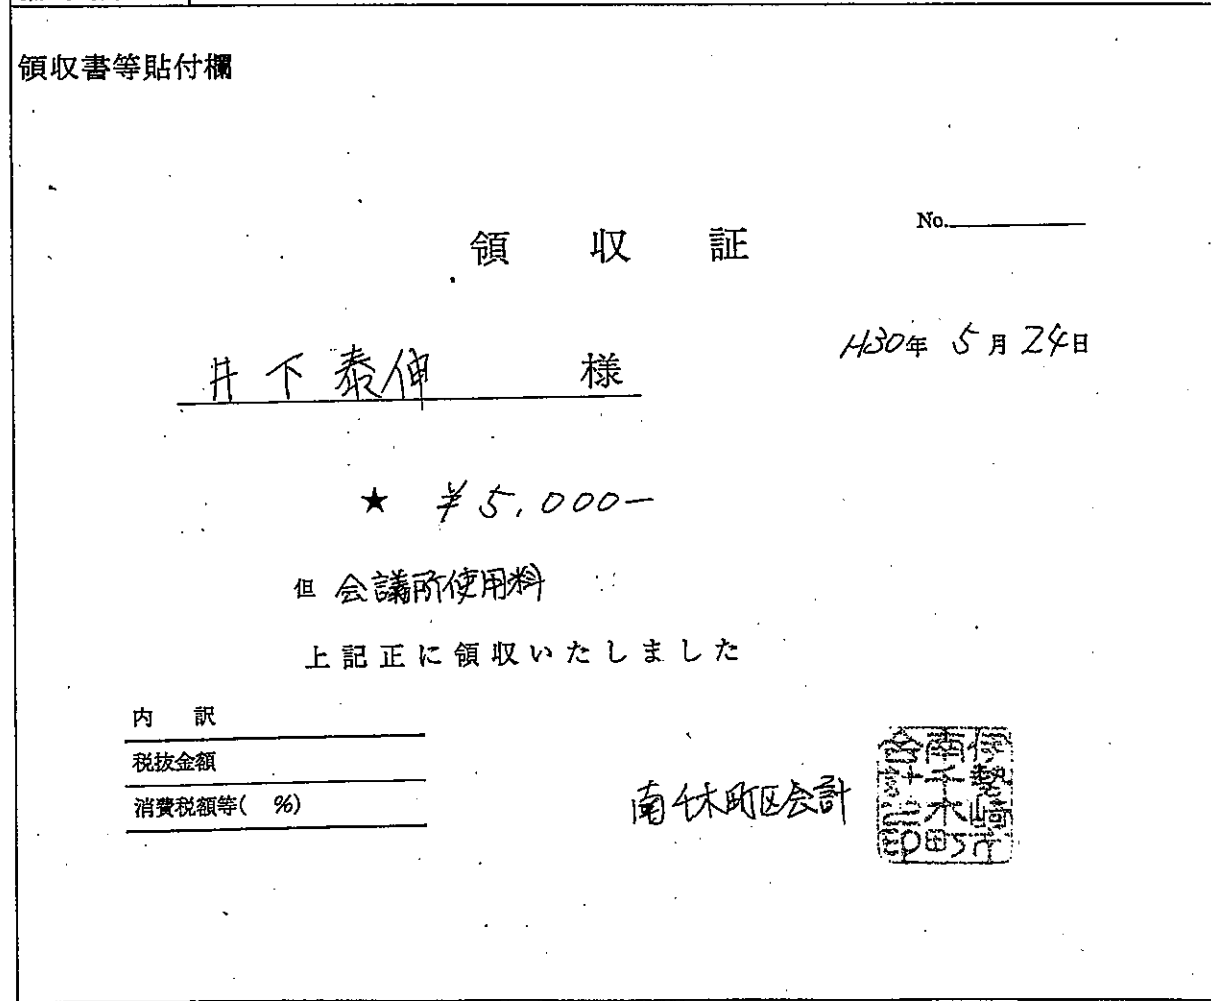 領収書等貼付欄
No.
領 収 証
H30年 5月 24日
井下泰伸 様
★ ¥5,000-
但 会議所使用料
上記正に領収いたしました
内 訳
税抜金額
消費税額等( %)
南千木町区会計
伊勢崎市
南千木町
会計之印